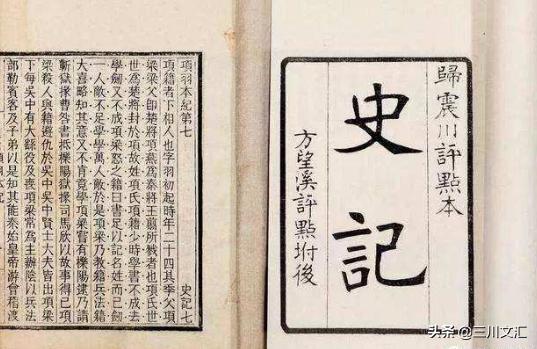 歸震川評點本
史記
方望溪評點坿後
項羽本紀第七 史記七
項籍者下相人也字羽初起時年二十四其季父項
梁梁父卽楚將項燕爲秦將王翦所戮者也項氏世
世爲楚將封於項故姓項氏項籍少時學書不成去
學劍又不成項梁怒之籍曰書足以記名姓而已劍
一人敵不足學學萬人敵於是項梁乃教籍兵法籍
大喜略知其意又不肯竟學項梁嘗有櫟陽逮乃請
蘄獄掾曹咎書抵櫟陽獄掾司馬欣以故事得已項
梁殺人與籍避仇於吳中吳中賢士大夫皆出項梁
下每吳中有大繇役及喪項梁常爲主辦陰以兵法
部勒賓客及子弟以是知其能秦始皇帝游會稽渡
头条 @三川文汇